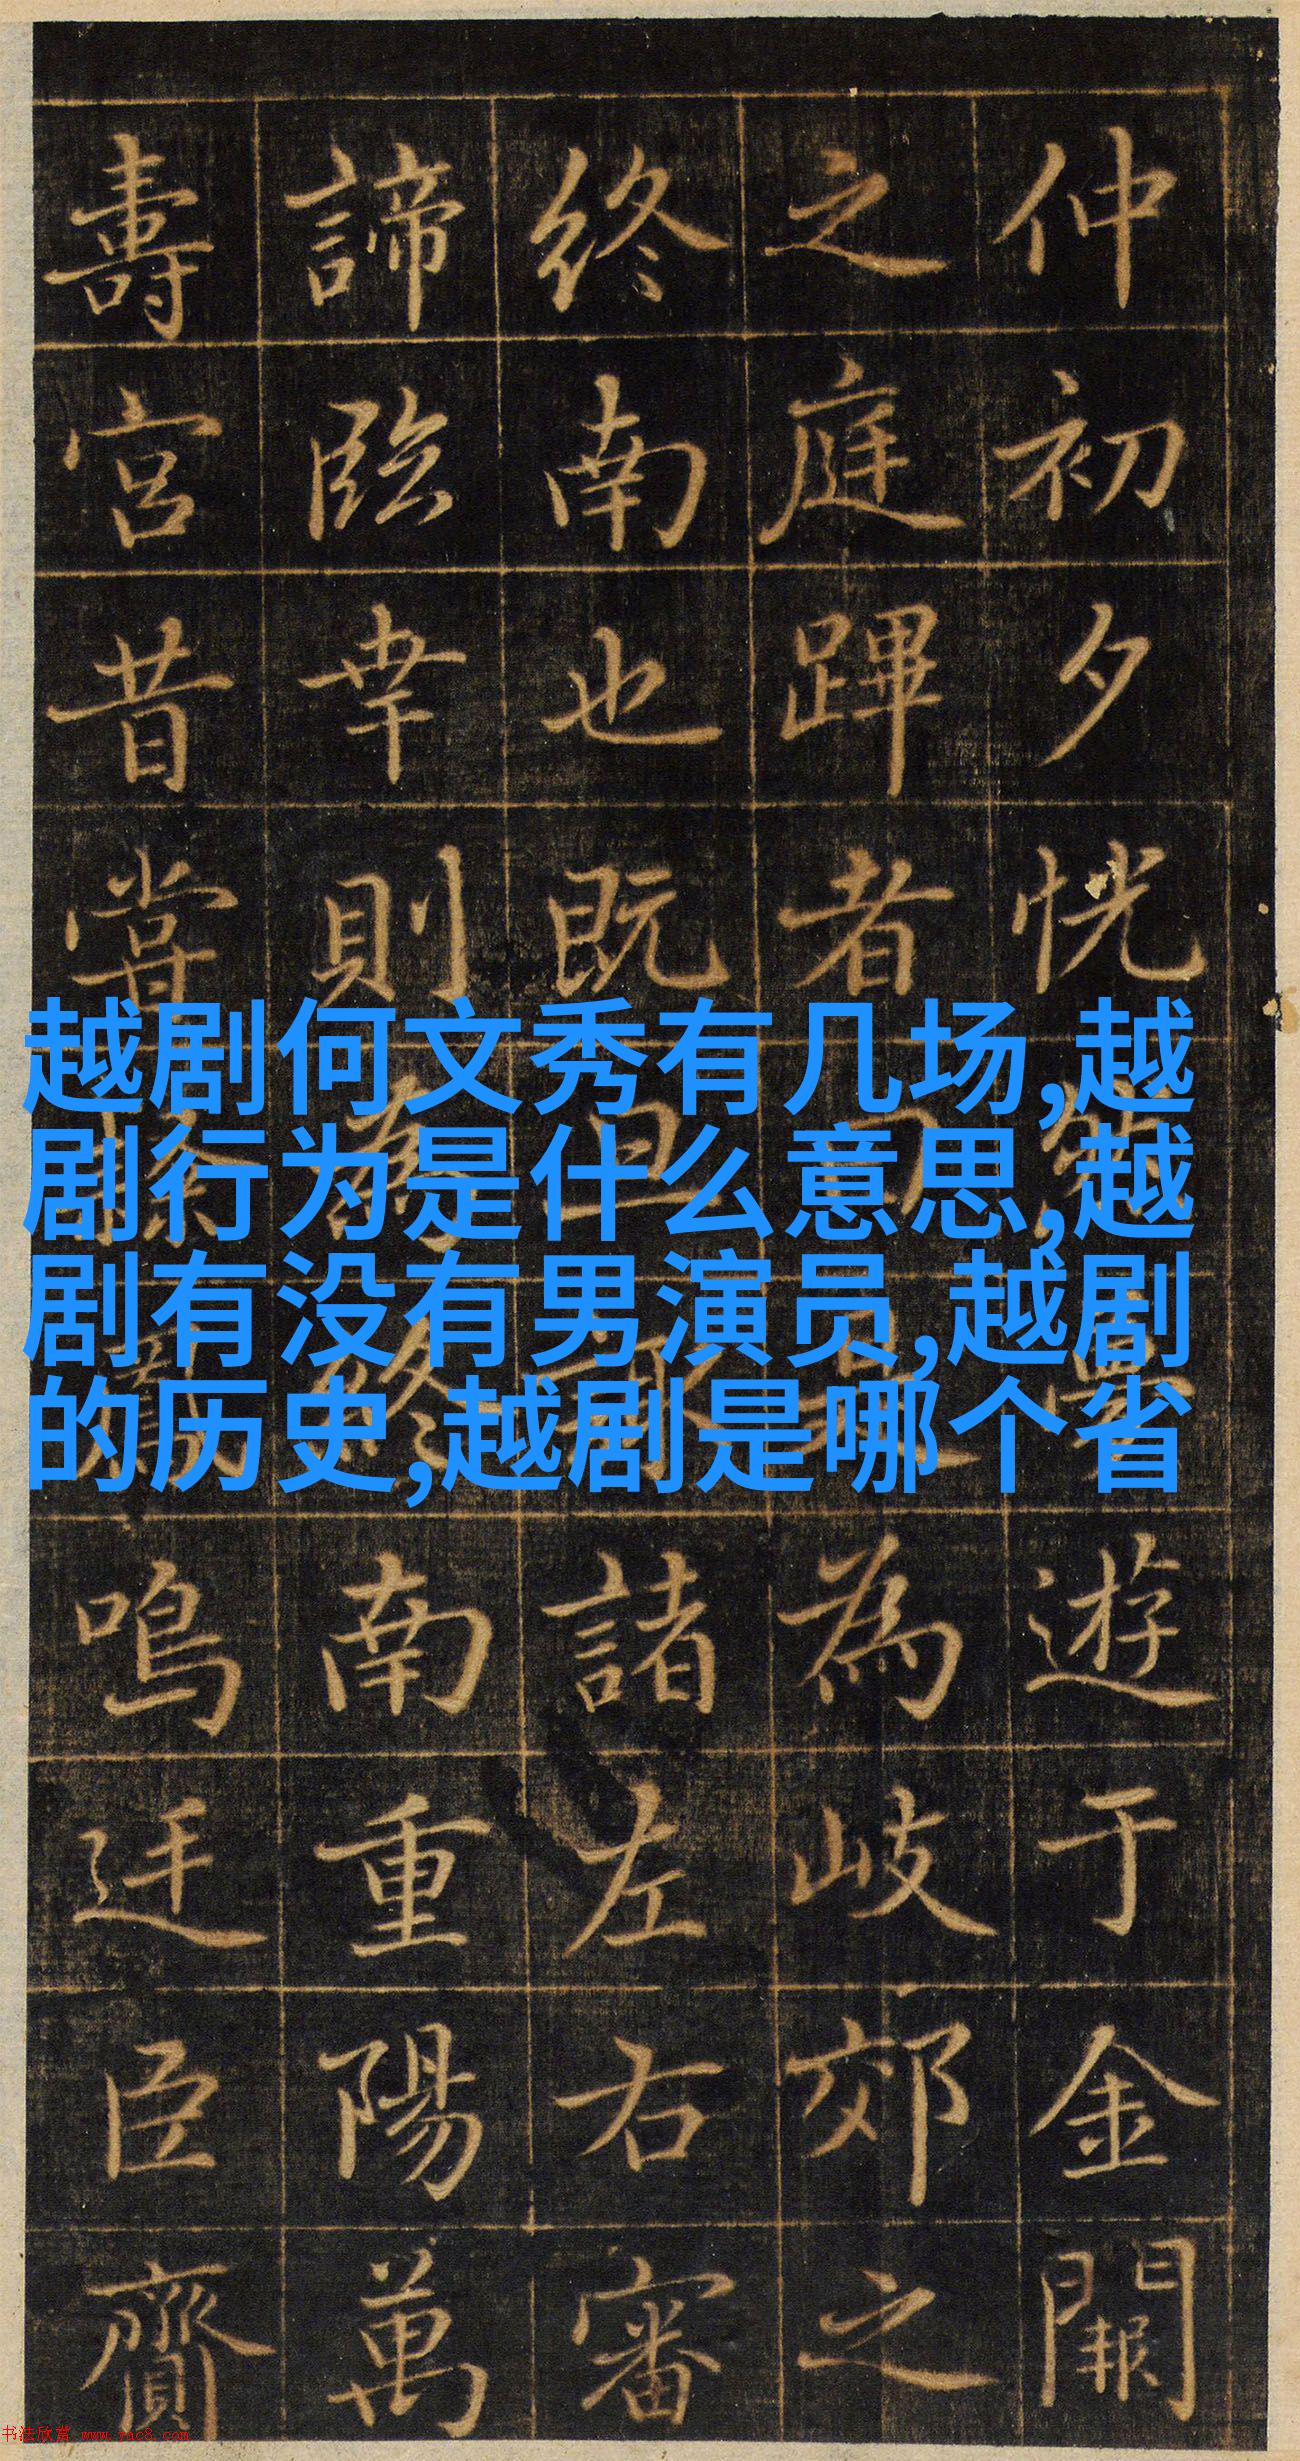 仲初夕恍遊于金闕
之庭蹕者為岐郊之
終南也既且諸左右審
諦臨幸則為終南重陽萬
壽宮昔嘗鳴迋臣齎
越剧何文秀有几场,越
剧行为是什么意思,越
剧有没有男演员,越剧
的历史,越剧是哪个省
书法欣赏 www.yac8.com